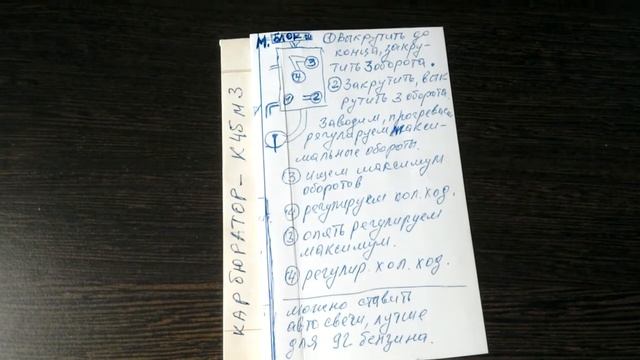 КАРБЮРАТОР - К45М3
М. БЛОК
① Выкрутить до
конца, закру-
тить 3 оборота.
② Закрутить, вык
рутить 3 оборота
Заводим, прогреваем
регулируем макси-
мальные обороты.
③ ищем максимум
оборотов
④ регулируем хол. ход.
③ опять регулируем
максимум.
④ регулир. хол. ход.
можно ставить
авто свечи, лучше
для 92 бензина.